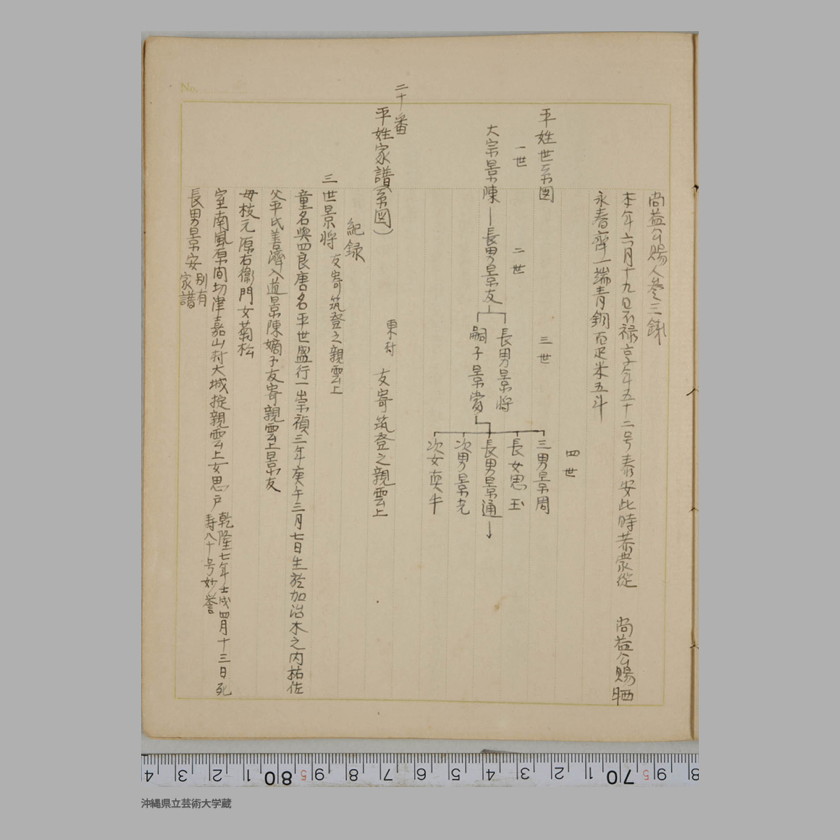 尚益公賜人参三銖
本年六月十九日不禄享年五十二号泰安此時恭蒙従 尚益公賜晒
永春席一端青銅百疋米五斗
平姓世系図
一世 二世 三世 四世
大宗景陳 長男景友
長男景将
嗣子景當
三男景周
長女思玉
長男景通
次男景光
次女真牛
二十番
平姓家譜(系図)
東村 友寄筑登之親雲上
紀録
三世景将 友寄筑登之親雲上
童名與四良唐名平世盛行一崇禎三年庚午三月七日生於加治木之内祐佐
父平氏善濟入道景陳嫡子友寄親雲上景友
母枝元原右衛門女菊松
室南風原間切津嘉山村大城掟親雲上女思戸 乾隆七年壬戌四月十三日死
寿八十号妙誉
長男景安 別有
家譜
No.
4 3 2 1 80 9 8 7 6 5 4 3 2 1 70 9 8
沖縄県立芸術大学蔵